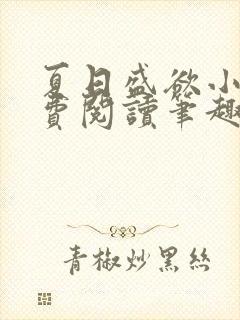 夏日盛欲小
費閱讀筆趣
青椒炒黑絲